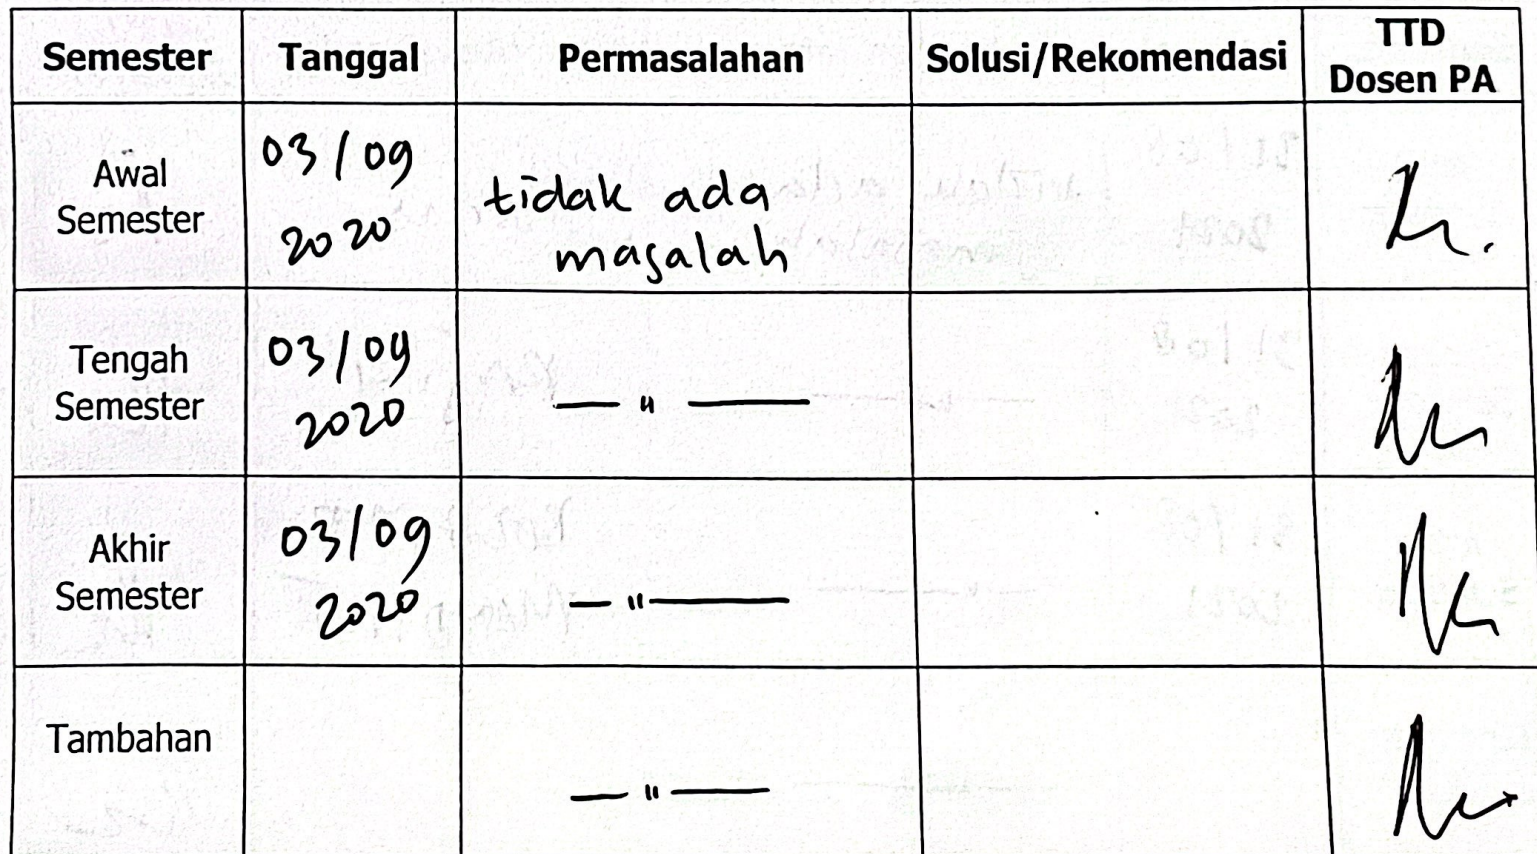 Semester Tanggal Permasalahan Solusi/Rekomendasi TTD
Dosen PA
Awal
Semester
03/09
2020
tidak ada
masalah
Tengah
Semester
03/09
2020
— " —
Akhir
Semester
03/09
2020
— " —
Tambahan
— " —